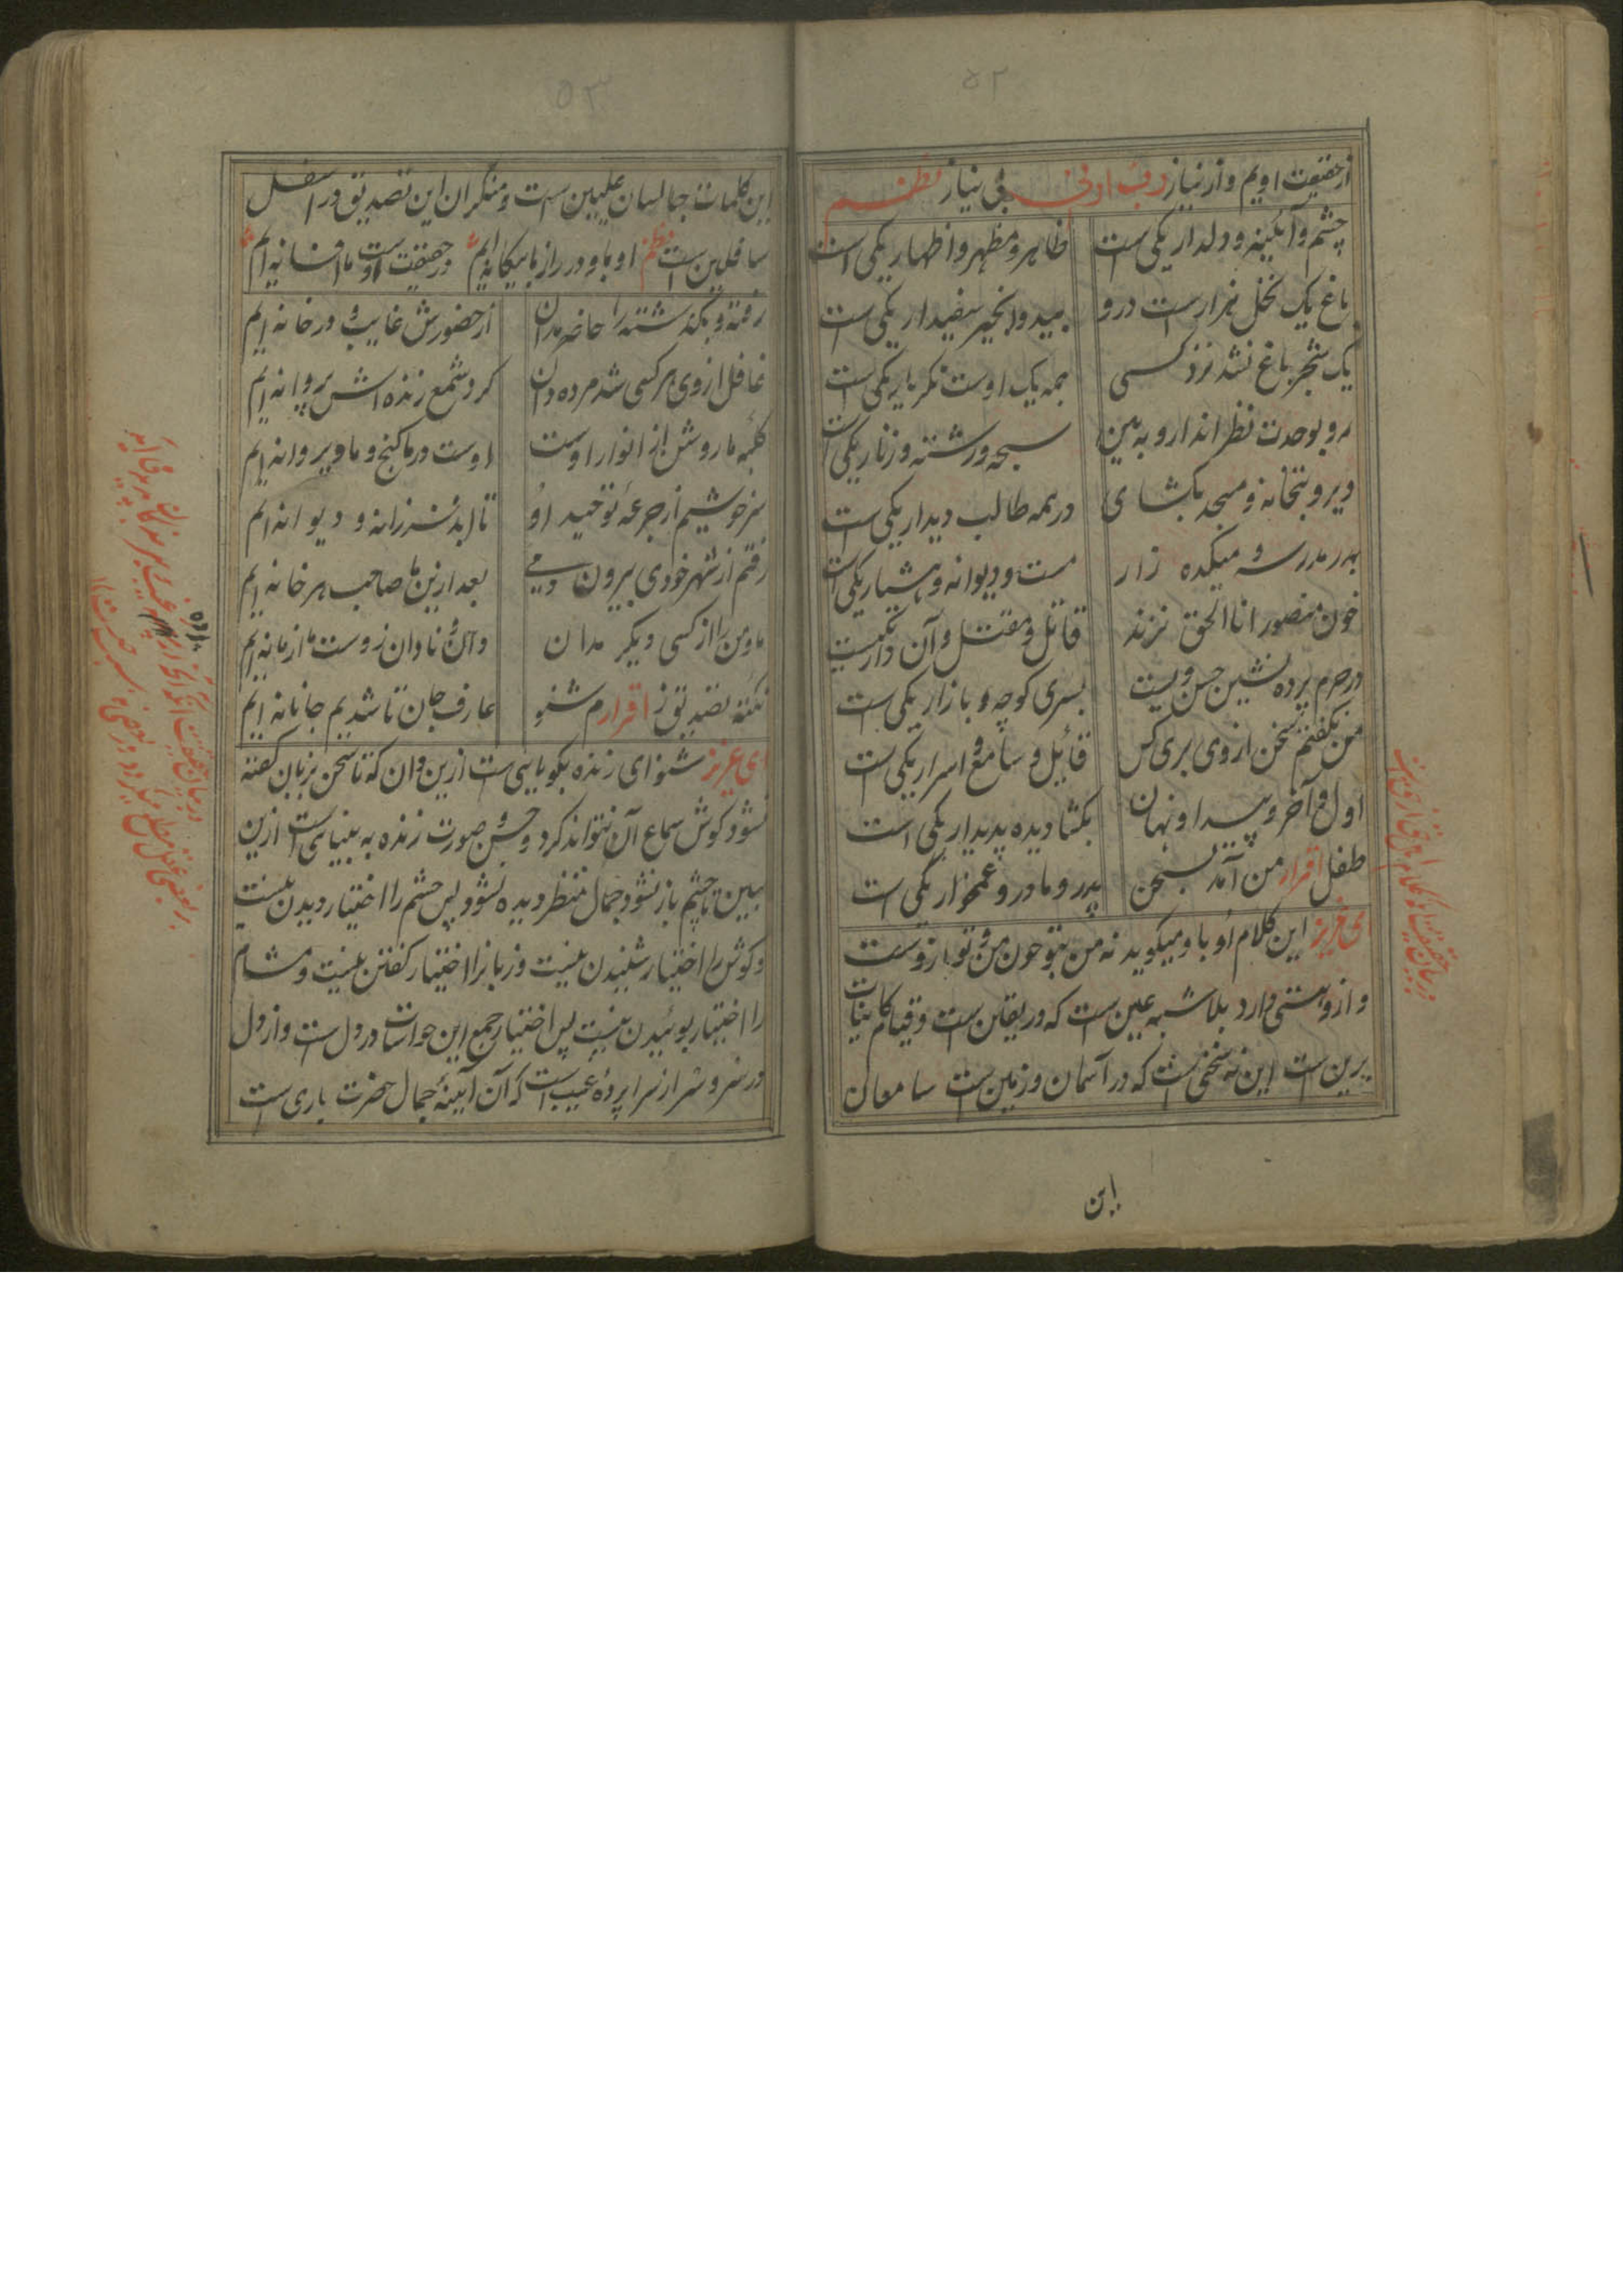 ۵۲
از حقیقت اویم و از نیاز رب ارنی بی نیاز نظم
چشم و آئینه و دلدار یکی است
ظاهر و مظهر و اظهار یکی است
باغ یک نخل هزار است درو
بید و انجیر سفیدار یکی است
یک شجر باغ نشد نزد کسی
همه یک اوست نکر یار یکی است
رو بوحدت نظر انداز و به بین
سبحه و رشته و زنار یکی است
دیر و بتخانه و مسجد بکشای
در همه طالب دیدار یکی است
مدرسه و میکده زار
مست و دیوانه و هشیار یکی است
خون منصور انا الحق نزند
قاتل و مقتل و آن دار یکیست
در حرم پرده نشین حسن ویست
بسری کوچه و بازار یکی است
من نکفتم سخن از وی بری کس
قائیل و سامع و اسرار یکی است
اول و آخر و پیدا و نهان
بکشا دیده پدیدار یکی است
طفل اقرار من آمد بسخن
پدر و مادر و غمخوار یکی است
ای عزیز این کلام او باو میکوید نه من بتو چون من و تو بازوست
و ازو هستی دارد بلا شبه عین است که در یقین است و قیام کاینات
برین است این نه سخنی است که در آسمان و زمین است سامعان
این
۵۳
این کلمات جالسان علیین است و منکران این تصدیق در اسفل
سافلین است نظم او باو در راز ما بیکانه ایم در حقیقت اوست ما افسانه ایم
رفته و بکذشته را حاضر مدان
از حضورش غایب و در خانه ایم
غافل از وی هر کسی شد مرده دان
کرد شمع زنده اش پروانه ایم
کلبه ما روشن از انوار اوست
اوست در ما کنج و ما ویرانه ایم
سرخوشیم از جرعه توحید او
تا ابد فرزانه و دیوانه ایم
رفتم از شهر خودی بیرون دمی
بعد ازین ما صاحب هر خانه ایم
ما و من را از کسی دیکر مدان
نکته تصدیق ز اقرارم شنو
عارف جان تا شدیم جانانه ایم
ای عزیز شنو ای زنده بکویایی ست ازین دان که تا سخن بزبان کفته
نشود کوش سماع آن نتواند کرد و حسن صورت زنده به بینایی است ازین
ببین تا چشم باز نشود جمال منتظر دیده نشود پس چشم را اختیار دیدن نیست
و کوش را اختیار شنیدن نیست و زبانرا اختیار کفتن نیست و مشام
را اختیار بوئیدن نیست پس اختیار جمع این حواسات در دل است و از دل
در سر و سر از سراپرده غیب است که آن آیینه جمال حضرت باری است